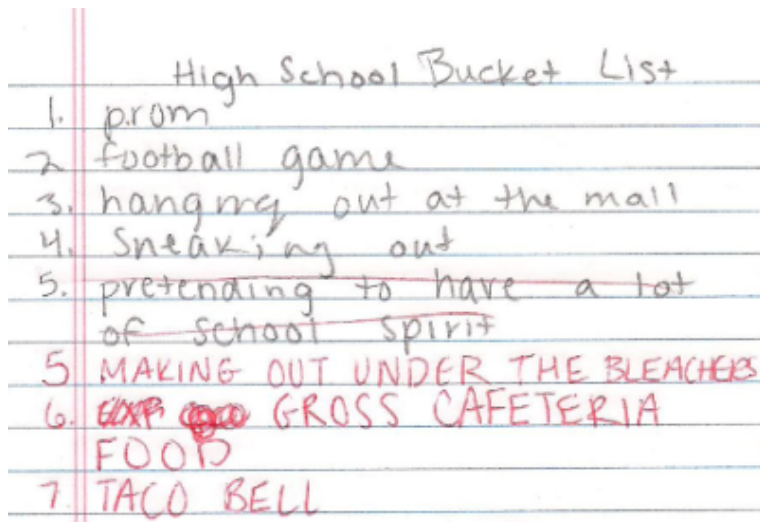 High School Bucket List
1. prom
2 football game
3. hanging out at the mall
4. Sneaking out
5. pretending to have a lot
of school spirit
5 MAKING OUT UNDER THE BLEACHERS
6. GROSS CAFETERIA
FOOD
7 TACO BELL